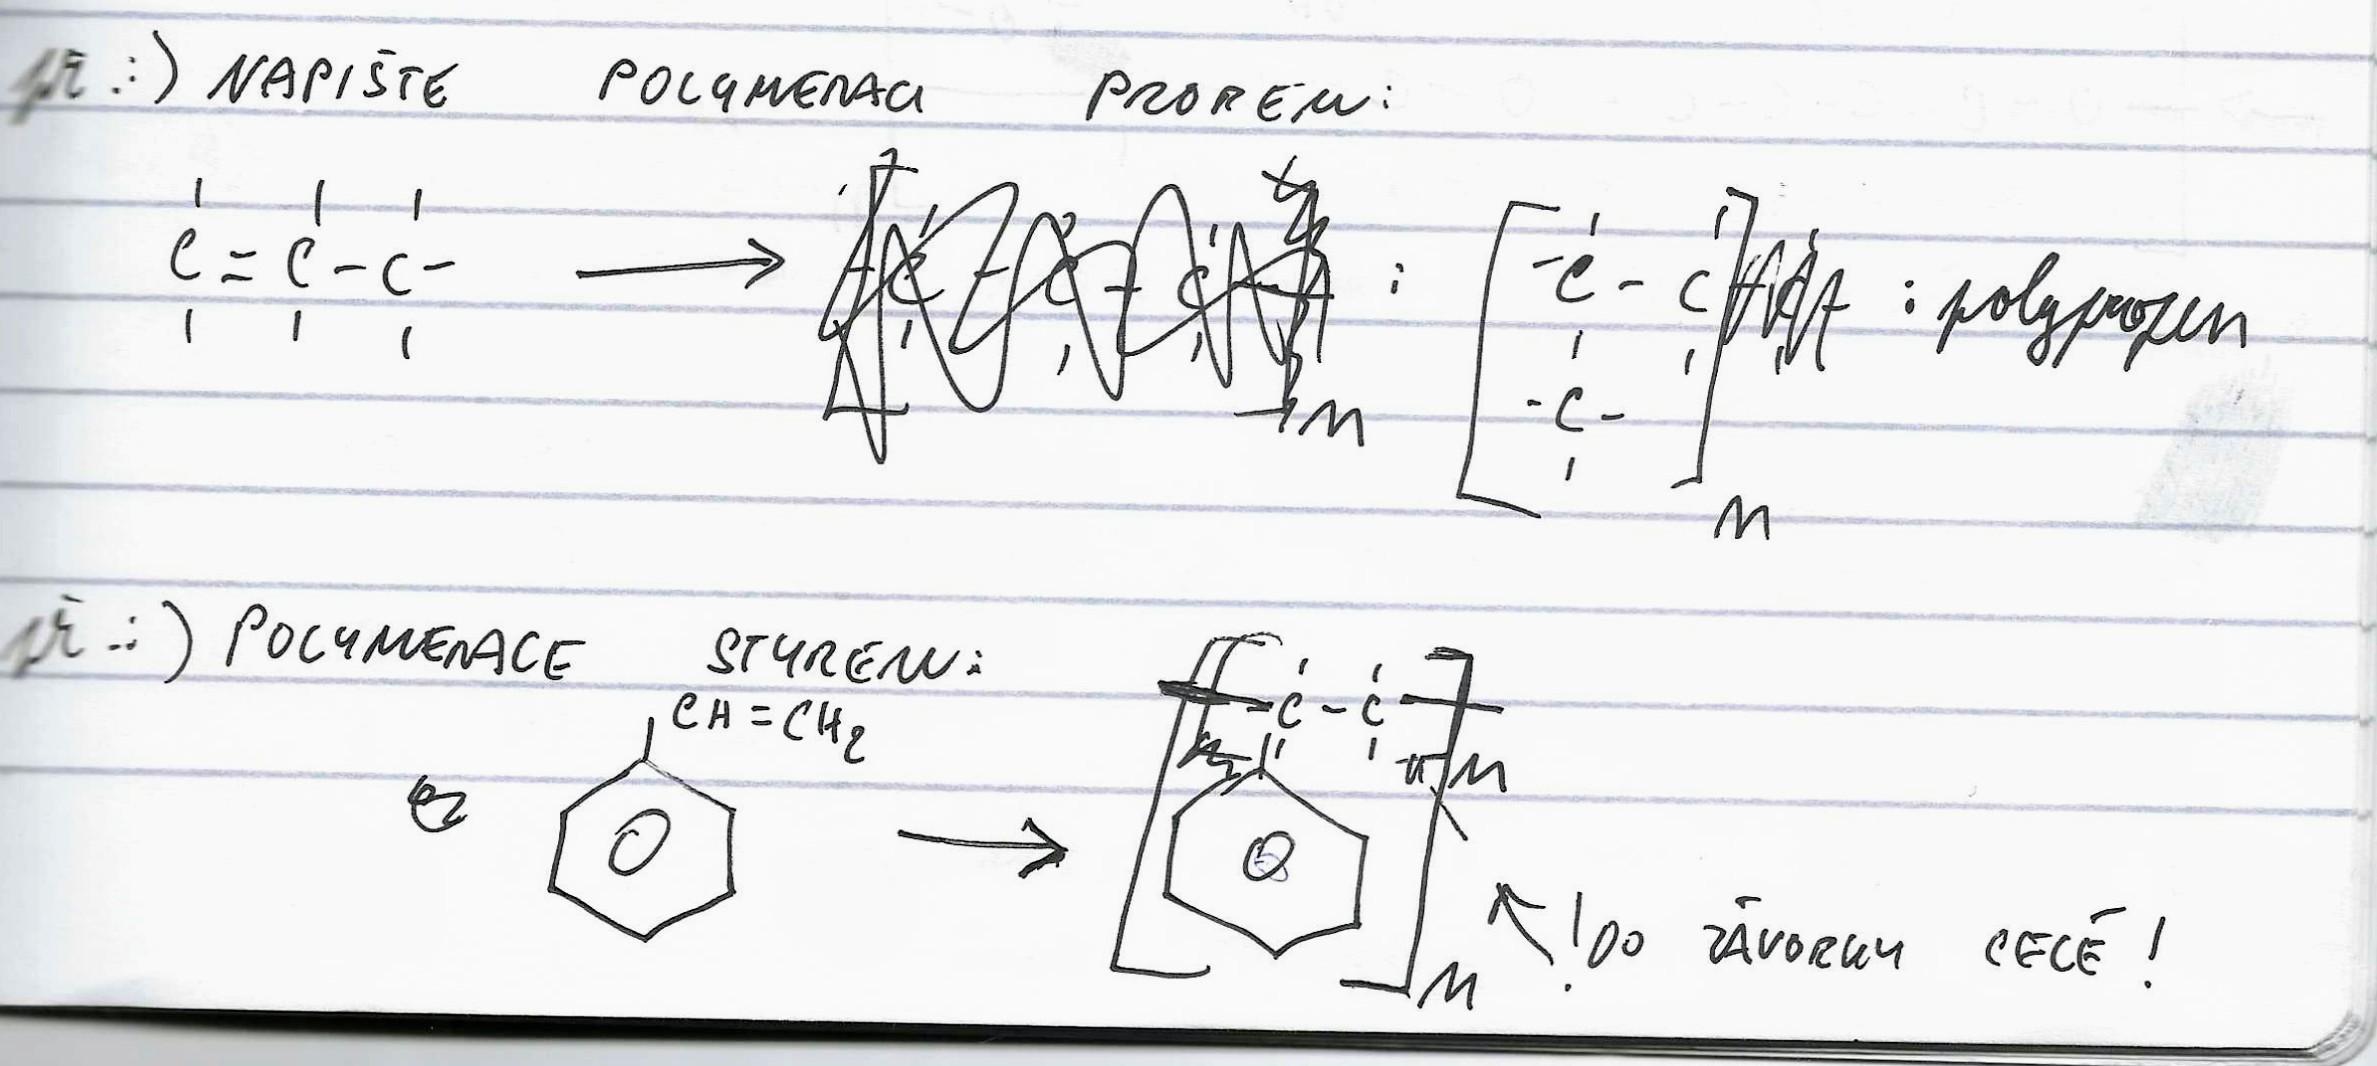 př.:) NAPIŠTE POLYMERACI PROPENU:
C = C - C - → [ - C - C ]n : polypropen
- C -
př.:) POLYMERACE STYRENU:
CH = CH2 → [ - C - C - ]n
! DO ZÁVORKY CELÉ !